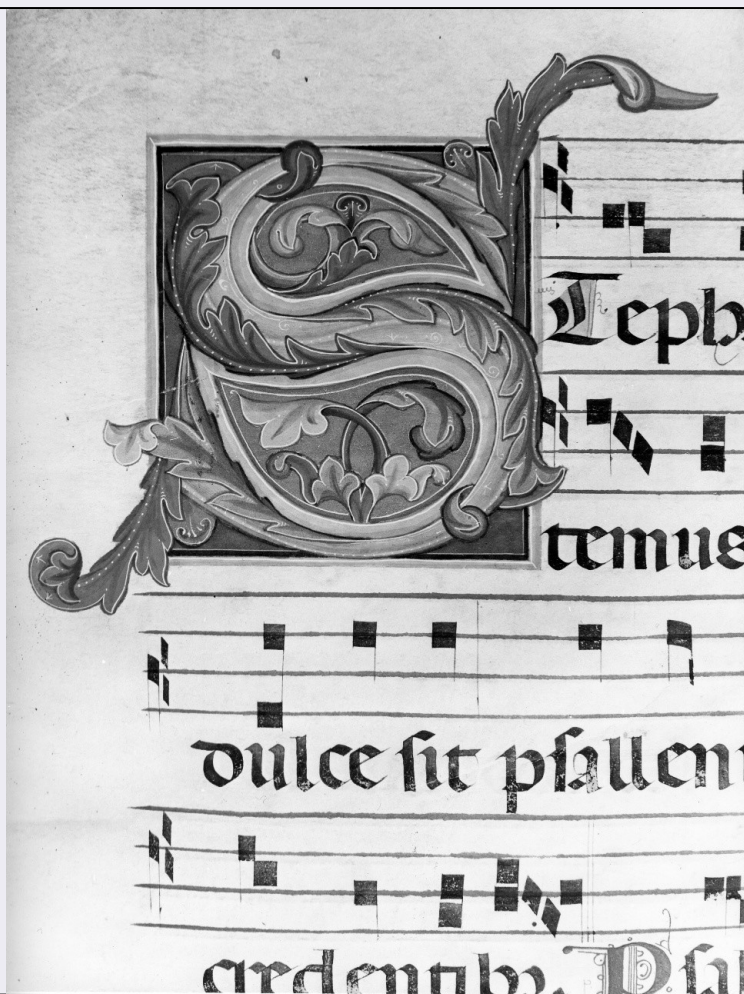 STeph
temus
dulce sit psallen
credentibꝫ. Psal